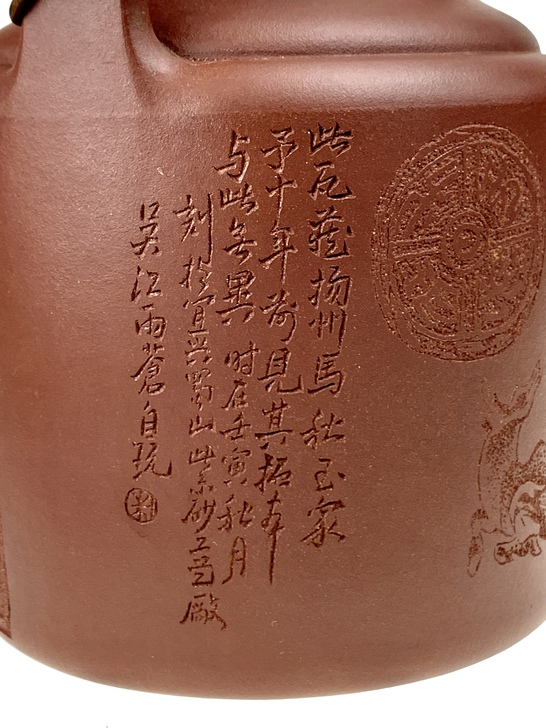 此瓦藏扬州馬秋玉家
予十年前見其拓本
与此無異 时在壬寅秋月
刻於宜兴蜀山紫砂工艺厰
吴江雨蒼自玩